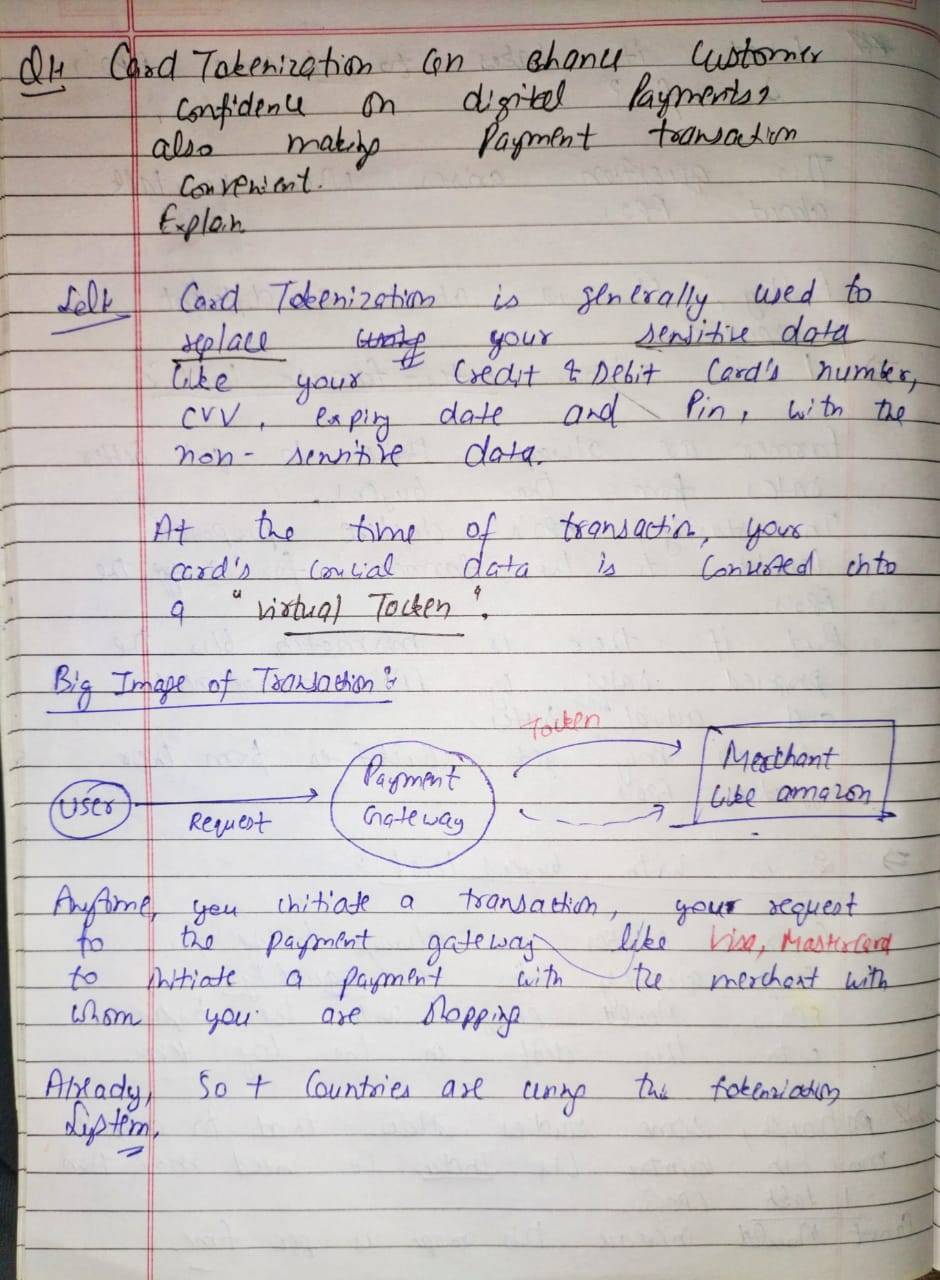 Q11 Card Tokenization can ehance Customer
Confidence on digital Payments,
also making Payment transaction
Convenient.
Explain
Card Tokenization is generally used to
replace your sensitive data
like your Credit & Debit Card's number,
CVV, expiry date and Pin, with the
non-sensitive data.
At the time of transaction, your
card's crucial data is Converted into
a "Virtual Tocken".
Big Image of Transaction:-
Tocken
User
Request
Payment
Gateway
Merchant
like amazon
Anytime, you initiate a transaction, your request
to the payment gateway like Visa, MasterCard
to initiate a payment with the merchant with
whom you are Shopping
Already, 50+ Countries are using this tokenization
System.